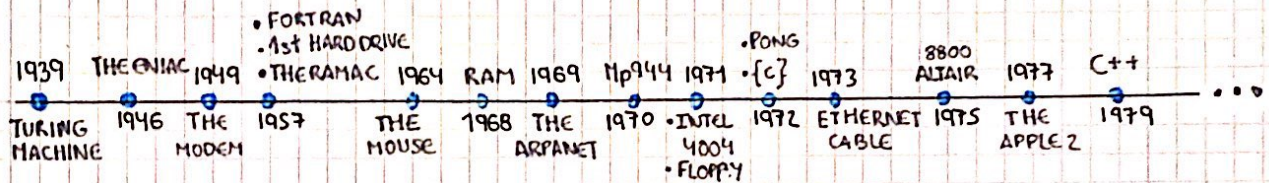 • FORTRAN
• 1st HARD DRIVE
• THE RAMAC
• PONG
• {C}
8800
ALTAIR
1939 THE ENIAC 1949 1964 RAM 1969 Mp944 1971 1973 1977 C++
TURING
MACHINE
1946 THE
MODEM
1957 THE
MOUSE
1968 THE
ARPANET
1970 • INTEL
4004
• FLOPPY
1972 ETHERNET
CABLE
1975 THE
APPLE 2
1979
...